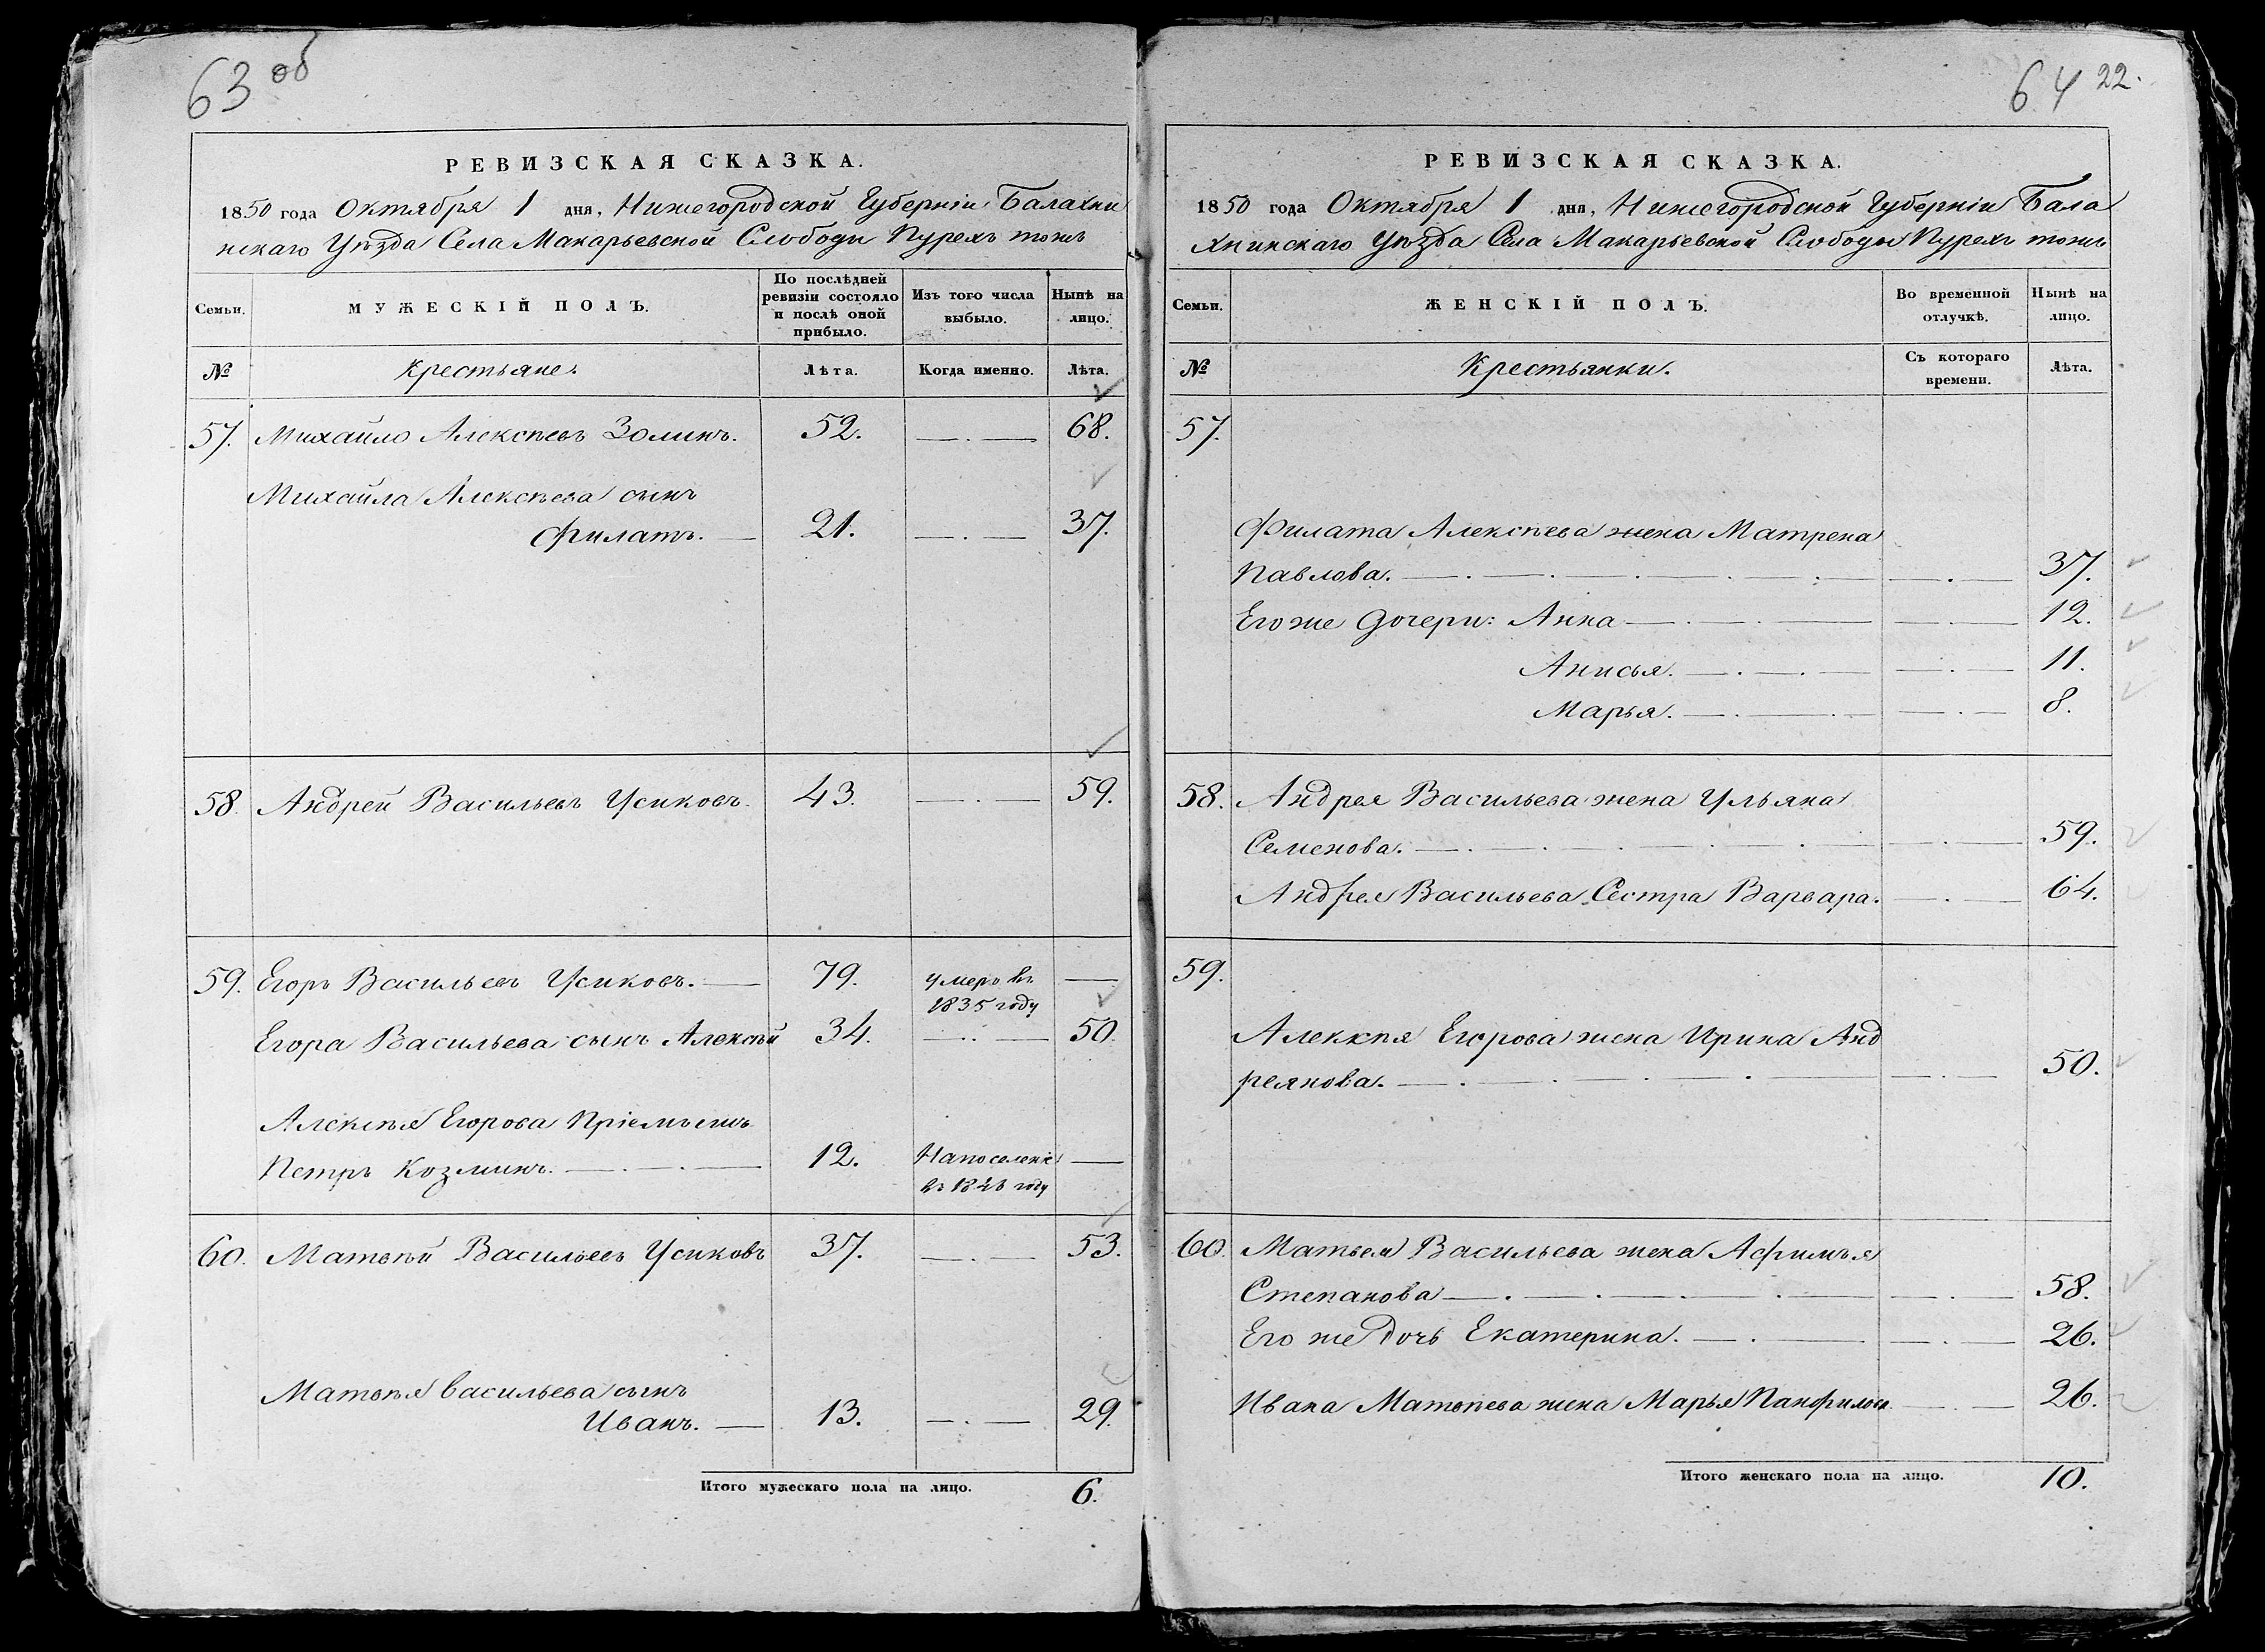 63 об
РЕВИЗСКАЯ СКАЗКА.
1850 года Октября 1 дня, Нижегородской Губерніи Балахни
нскаго Уѣзда Села Макарьевской Слободы Пурехъ тожъ
Семьи.
МУЖЕСКІЙ ПОЛЪ.
По послѣдней ревизіи состояло и послѣ оной прибыло.
Изъ того числа выбыло.
Нынѣ на лицо.
№
Крестьяне.
Лѣта.
Когда именно.
Лѣта.
57. Михайло Алексѣевъ Золинъ. 52. 68.
Михайла Алексѣева сынъ
Филатъ. 21. 37.
58. Андрей Васильевъ Усиковъ. 43. 59.
59. Егоръ Васильевъ Усиковъ. 79. умеръ въ
1835 году
Егора Васильева сынъ Алексѣй 34. 50.
Алексѣя Егорова Пріемышъ
Петръ Козминъ. 12. На поселеніе
въ году
60. Матвѣй Васильевъ Усиковъ 37. 53.
Матвѣя Васильева сынъ
Иванъ. 13. 29.
Итого мужескаго пола на лицо. 6.
64 22.
РЕВИЗСКАЯ СКАЗКА.
1850 года Октября 1 дня, Нижегородской Губерніи Бала
хнинскаго Уѣзда Села Макарьевской Слободы Пурехъ тожъ
Семьи.
ЖЕНСКІЙ ПОЛЪ.
Во временной отлучкѣ.
Нынѣ на лицо.
№
Крестьянки.
Съ котораго времени.
Лѣта.
57.
Филата Алексѣева жена Матрена
Павлова. 37.
Его же дочери: Анна 12.
Анисья. 11.
Марья. 8.
58. Андрея Васильева жена Ульяна
Семенова. 59.
Андрея Васильева Сестра Варвара. 64.
59.
Алексѣя Егорова жена Ирина Анд
реянова. 50.
60. Матвея Васильева жена Афимья
Степанова 58.
Его же дочь Екатерина. 26.
Ивана Матвѣева жена Марья Панфилова 26.
Итого женскаго пола на лицо. 10.